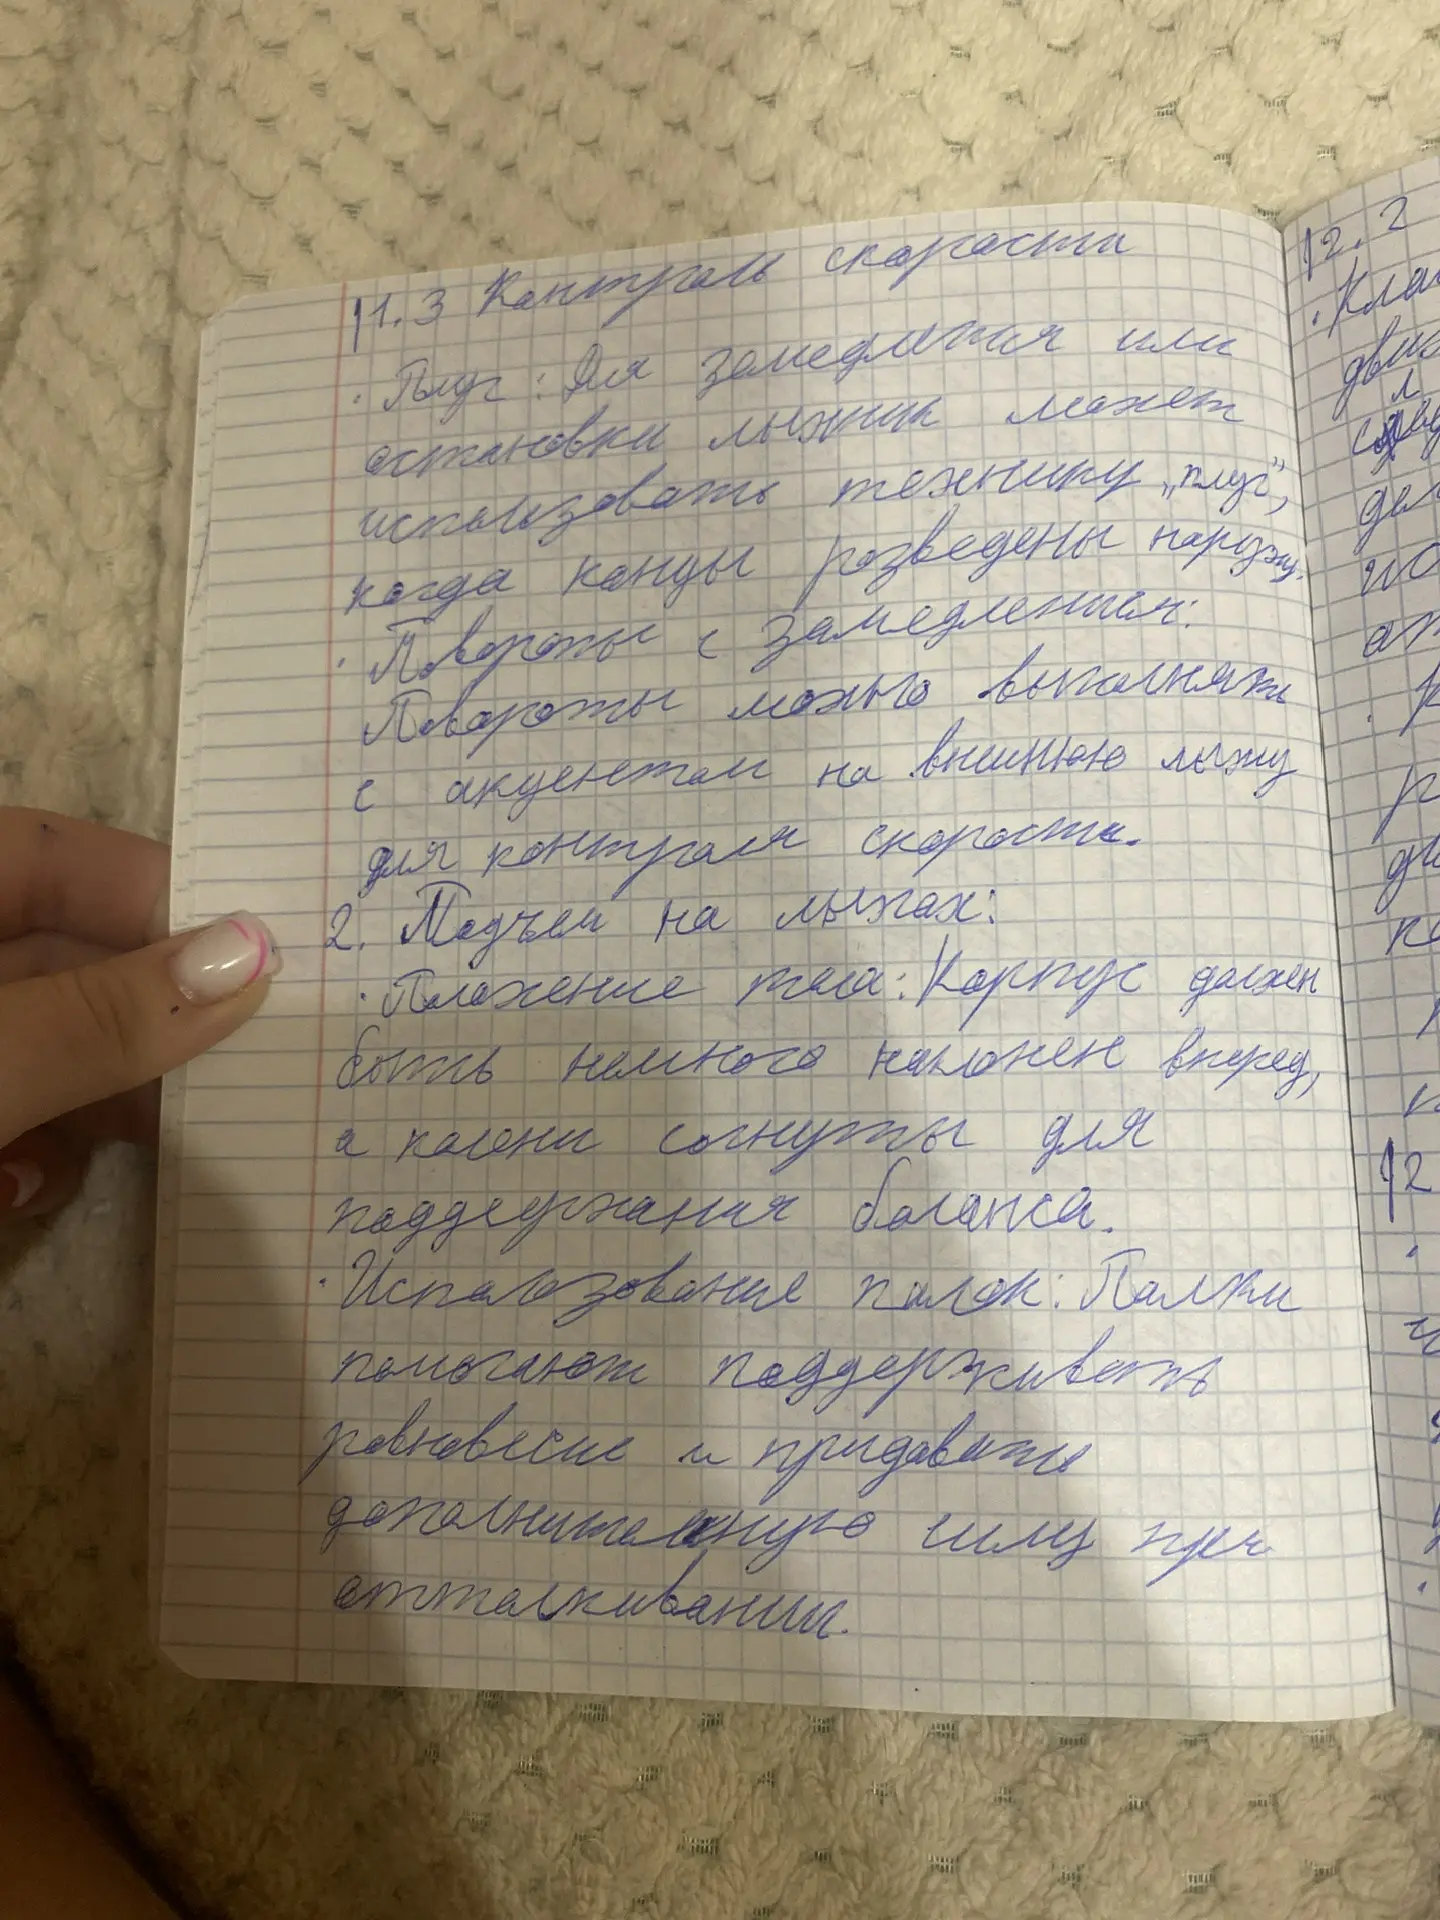 1.3 Контроль скорости
· Плуг: Для замедления или
остановки лыжник может
использовать технику „плуг",
когда концы разведены наружу.
· Повороты с замедлением:
Повороты можно выполнять
с акцентом на внешнюю лыжу
для контроля скорости.
2. Подъем на лыжах:
· Положение тела: Корпус должен
быть немного наклонен вперед,
а колени согнуты для
поддержания баланса.
· Использование палок: Палки
помогают поддерживать
равновесие и придавать
дополнительную силу при
отталкивании.
2.2